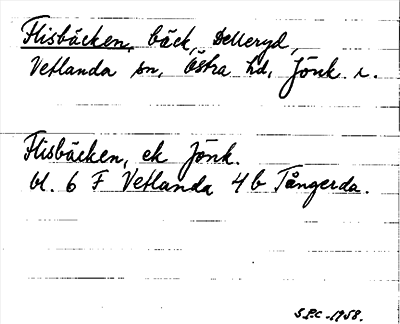 Flisbäcken, bäck, Delleryd,
Vetlanda sn, Östra hd, Jönk. r.
Flisbäcken, ek Jönk.
bl. 6 F Vetlanda 4 b Tångerda.
S.P.C -1958.